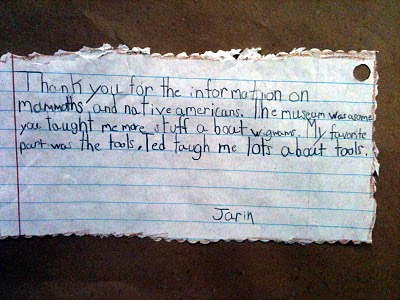 Thank you for the information on
mammoths, and native americans. The museum was asome
you taught me more stuff a boat wigwams. My favorite
part was the tools, Ted taugh me lots about tools.
Jarin